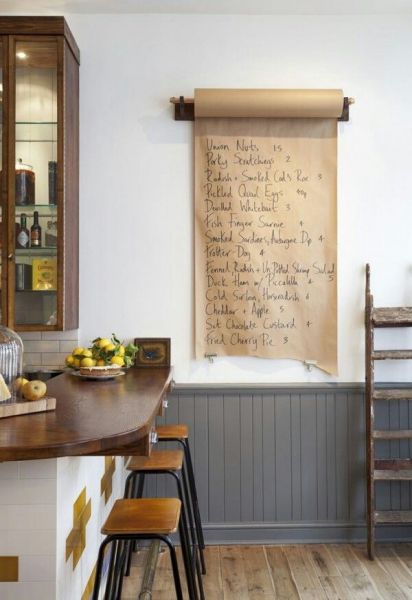 Union Nuts 1.5
Porky Scratchings 2
Radish + Smoked Cods Roe 3
Pickled Quail Eggs
Devilled Whitebait 3
Fish Finger Sarnie 4
Smoked Sardines, Aubergine Dip 4
Trotter Dog 4
Fennel, Radish + Potted Shrimp Salad 5
Duck Ham w/ Piccalilli 4
Cold Sirloin, Horseradish 6
Cheddar + Apple 5
Set Chocolate Custard 4
Fried Cherry Pie 3